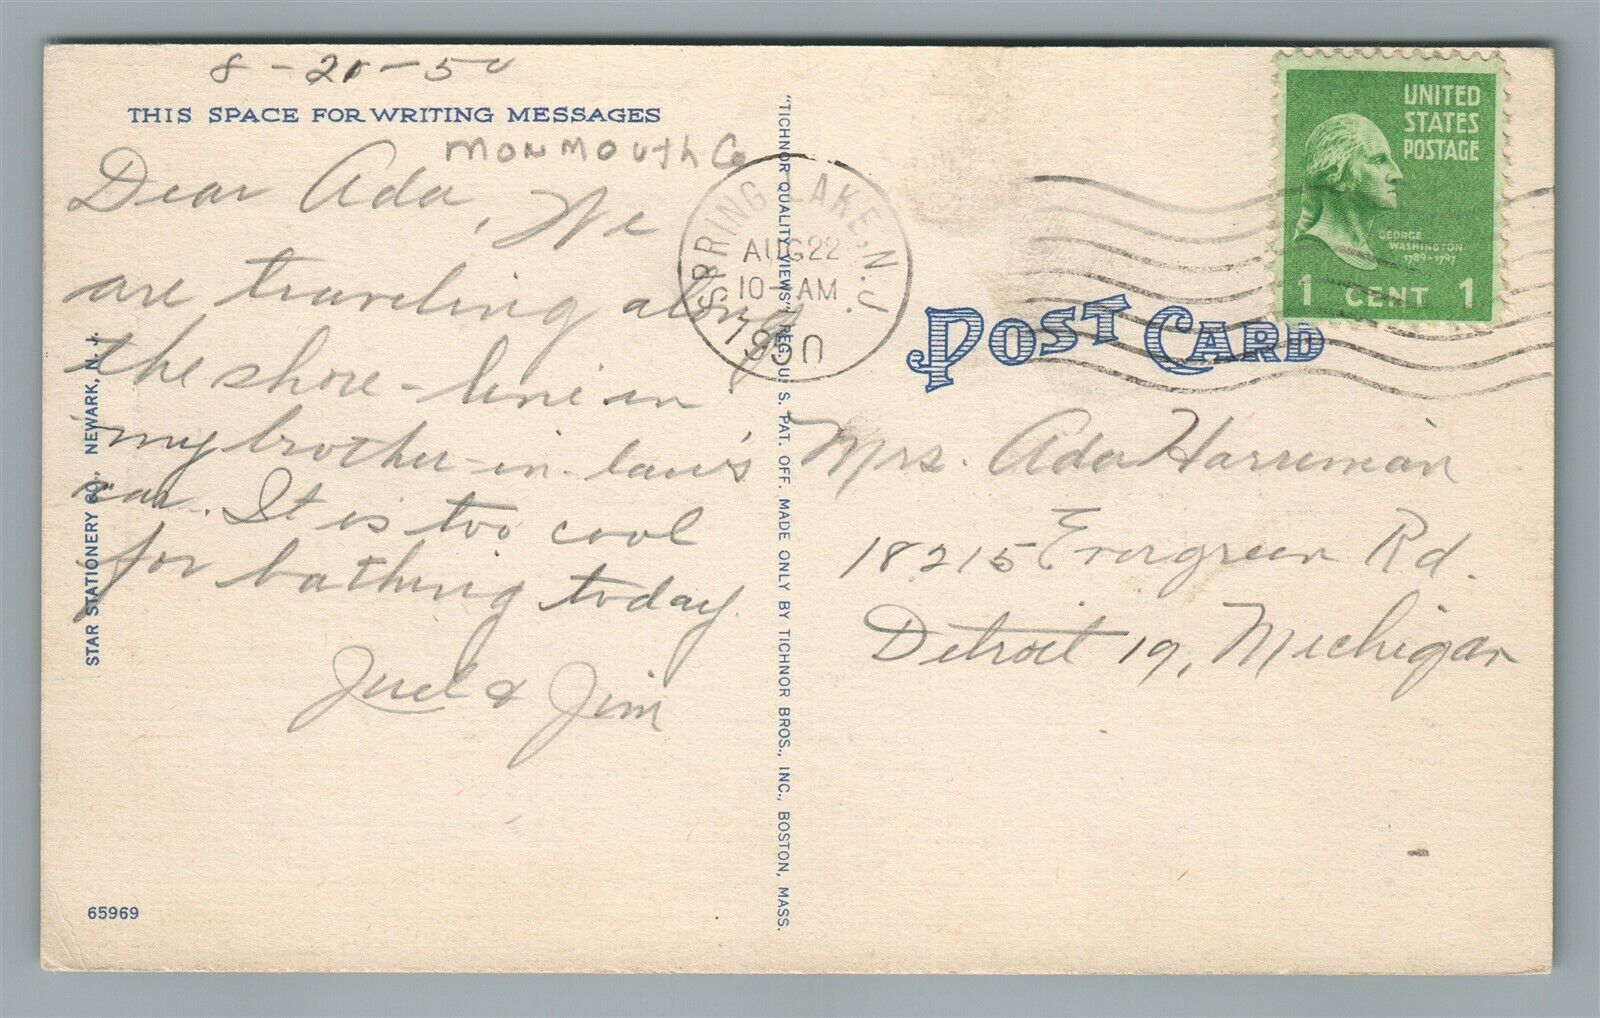 8-21-50
THIS SPACE FOR WRITING MESSAGES
Monmouth Co
Dear Ada, We
are traveling along
the shore-line in
my brother-in-law's
car. It is too cool
for bathing today.
& Jim
STAR STATIONERY CO., NEWARK, N. J.
65969
"TICHNOR QUALITY VIEWS" REG. U. S. PAT. OFF. MADE ONLY BY TICHNOR BROS., INC., BOSTON, MASS.
SPRING LAKE, N.J.
AUG 22
10 - AM
1950
UNITED
STATES
POSTAGE
GEORGE
WASHINGTON
1789-1797
1 CENT 1
POST CARD
Mrs. Ada Harriman
18215 Evergreen Rd.
Detroit 19, Michigan